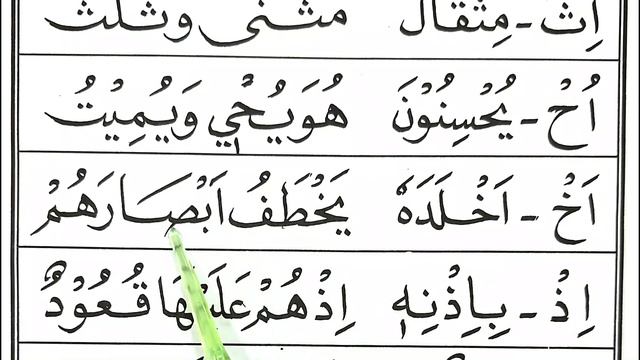 اِثْ - مِثْقَالَ مَثْنٰى وَثُلٰثَ
اُحْ - يُحْسِنُوْنَ هُوَ يُحْيٖ وَيُمِيْتُ
اَخْ - اَخْلَدَهٗ يَخْطَفُ اَبْصَارَهُمْ
اِذْ - بِاِذْنِهٖ اِذْهُمْ عَلَيْهَا قُعُوْدٌ